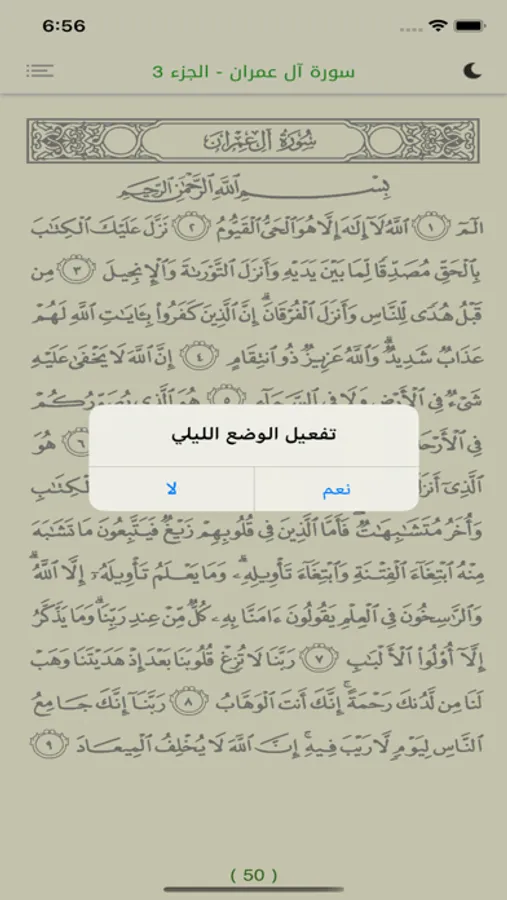 6:56
سورة آل عمران - الجزء 3
سُورَةُ آلِ عِمْرَانَ
بِسْمِ اللَّهِ الرَّحْمَٰنِ الرَّحِيمِ
الٓمٓ ١ اللَّهُ لَآ إِلَٰهَ إِلَّا هُوَ الْحَىُّ الْقَيُّومُ ٢ نَزَّلَ عَلَيْكَ الْكِتَٰبَ
بِالْحَقِّ مُصَدِّقًا لِّمَا بَيْنَ يَدَيْهِ وَأَنزَلَ التَّوْرَىٰةَ وَالْإِنجِيلَ ٣ مِن
قَبْلُ هُدًى لِّلنَّاسِ وَأَنزَلَ الْفُرْقَانَ ۗ إِنَّ الَّذِينَ كَفَرُوا۟ بِـَٔايَٰتِ اللَّهِ لَهُمْ
عَذَابٌ شَدِيدٌ ۗ وَاللَّهُ عَزِيزٌ ذُو انتِقَامٍ ٤ إِنَّ اللَّهَ لَا يَخْفَىٰ عَلَيْهِ
شَىْءٌ فِى الْأَرْضِ وَلَا فِى السَّمَآءِ ٥ هُوَ الَّذِى يُصَوِّرُكُمْ
فِى ٦ هُوَ
الَّذِىٓ
وَأُخَرُ مُتَشَٰبِهَٰتٌ ۖ فَأَمَّا الَّذِينَ فِى قُلُوبِهِمْ زَيْغٌ فَيَتَّبِعُونَ مَا تَشَٰبَهَ
مِنْهُ ابْتِغَآءَ الْفِتْنَةِ وَابْتِغَآءَ تَأْوِيلِهِۦ ۗ وَمَا يَعْلَمُ تَأْوِيلَهُۥٓ إِلَّا اللَّهُ ۗ
وَالرَّٰسِخُونَ فِى الْعِلْمِ يَقُولُونَ ءَامَنَّا بِهِۦ كُلٌّ مِّنْ عِندِ رَبِّنَا ۗ وَمَا يَذَّكَّرُ
إِلَّآ أُو۟لُوا۟ الْأَلْبَٰبِ ٧ رَبَّنَا لَا تُزِغْ قُلُوبَنَا بَعْدَ إِذْ هَدَيْتَنَا وَهَبْ
لَنَا مِن لَّدُنكَ رَحْمَةً ۚ إِنَّكَ أَنتَ الْوَهَّابُ ٨ رَبَّنَآ إِنَّكَ جَامِعُ
النَّاسِ لِيَوْمٍ لَّا رَيْبَ فِيهِ ۚ إِنَّ اللَّهَ لَا يُخْلِفُ الْمِيعَادَ ٩
تفعيل الوضع الليلي
نعم
لا
( 50 )